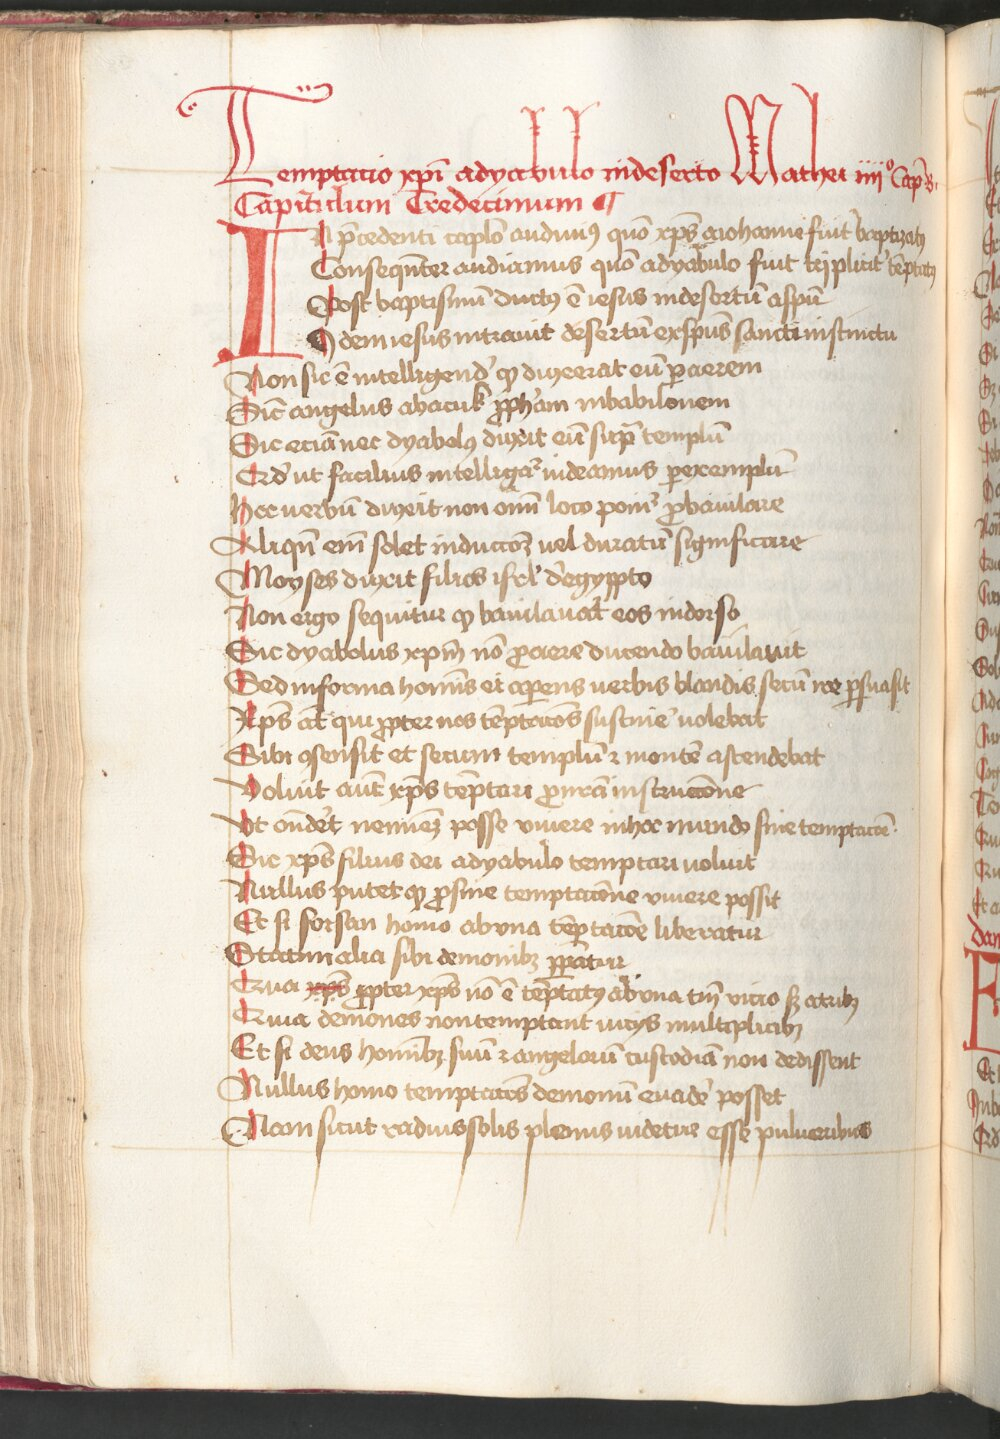 Temptacio xp̄i adyabulo indeserto Mathei iiii° Cap̄
Capit̄ulum Tredecimum ¶
IN p̄cedenti caplo audiuimꝰ quō xp̄s aiohanne fuit baptizatꝰ
Consequēnter audiamus quō adyabulo fuit tripliciṫ tēptatꝰ
Post baptismū ductꝰ ē iesus indesertū aspū
Idem iesus intrauit desertū exspūs sancti instinctu
Non sic ē intelligend' ꝙ duxerat eū p aerem
Sic̄ angelus abacuk ꝓph̄am inbabilonem
Sic eciā nec dyabolꝰ duxit eū sup̄ templū
Ꝫd' ut facilius intelligat᷑ uideamus p exemplū
Hoc uerbū duxit non om̄i loco ponit᷑ ꝓ baiulare
Aliqn̄ em̄ solet inductoꝝ uel ducatū significare
Moyses duxit filios isrl' d'egypto
Non ergo sequitur ꝙ baiulauat eos indorso
Sic dyabolus xpm̄ nō ꝓ aere ducendo baiulauit
Sed informa hominis ei aperens uerbis blandis secū ire p̱suasit
Xp̄s aūt qui ꝓpter nos tēptacōes sustinē uolebat
Sibi ꝯsensit et secum templū ⁊ montē ascendebat
Voluit aut̄ xp̄s tēptari ꝓ nr̄a instruccōne
Vt ond'et neminē posse viuere inhoc mundo sine temptacōe
Sic xp̄s filius dei adyabulo temptari uoluit
Nullus putet ꝙ ꝓ sine temptacōne viuere possit
Et si forsan homo abvna tēptacōe liberatur
Statim alia sibi demonibꝫ ꝓp̄atur
Quia xp̄s ꝓpter xp̄s nō ē tēptatꝰ abvna tm̄ vicio sꝫ atribꝫ
Quia demones nontemptant uicijs multiplicibꝫ
Et si deus hominibꝫ suū ⁊ angelorū custodiā non dedissent
Nullus homo temptacōes demonū euad'e posset
Nam sicut radius solis plenus uidetur esse pulueribus